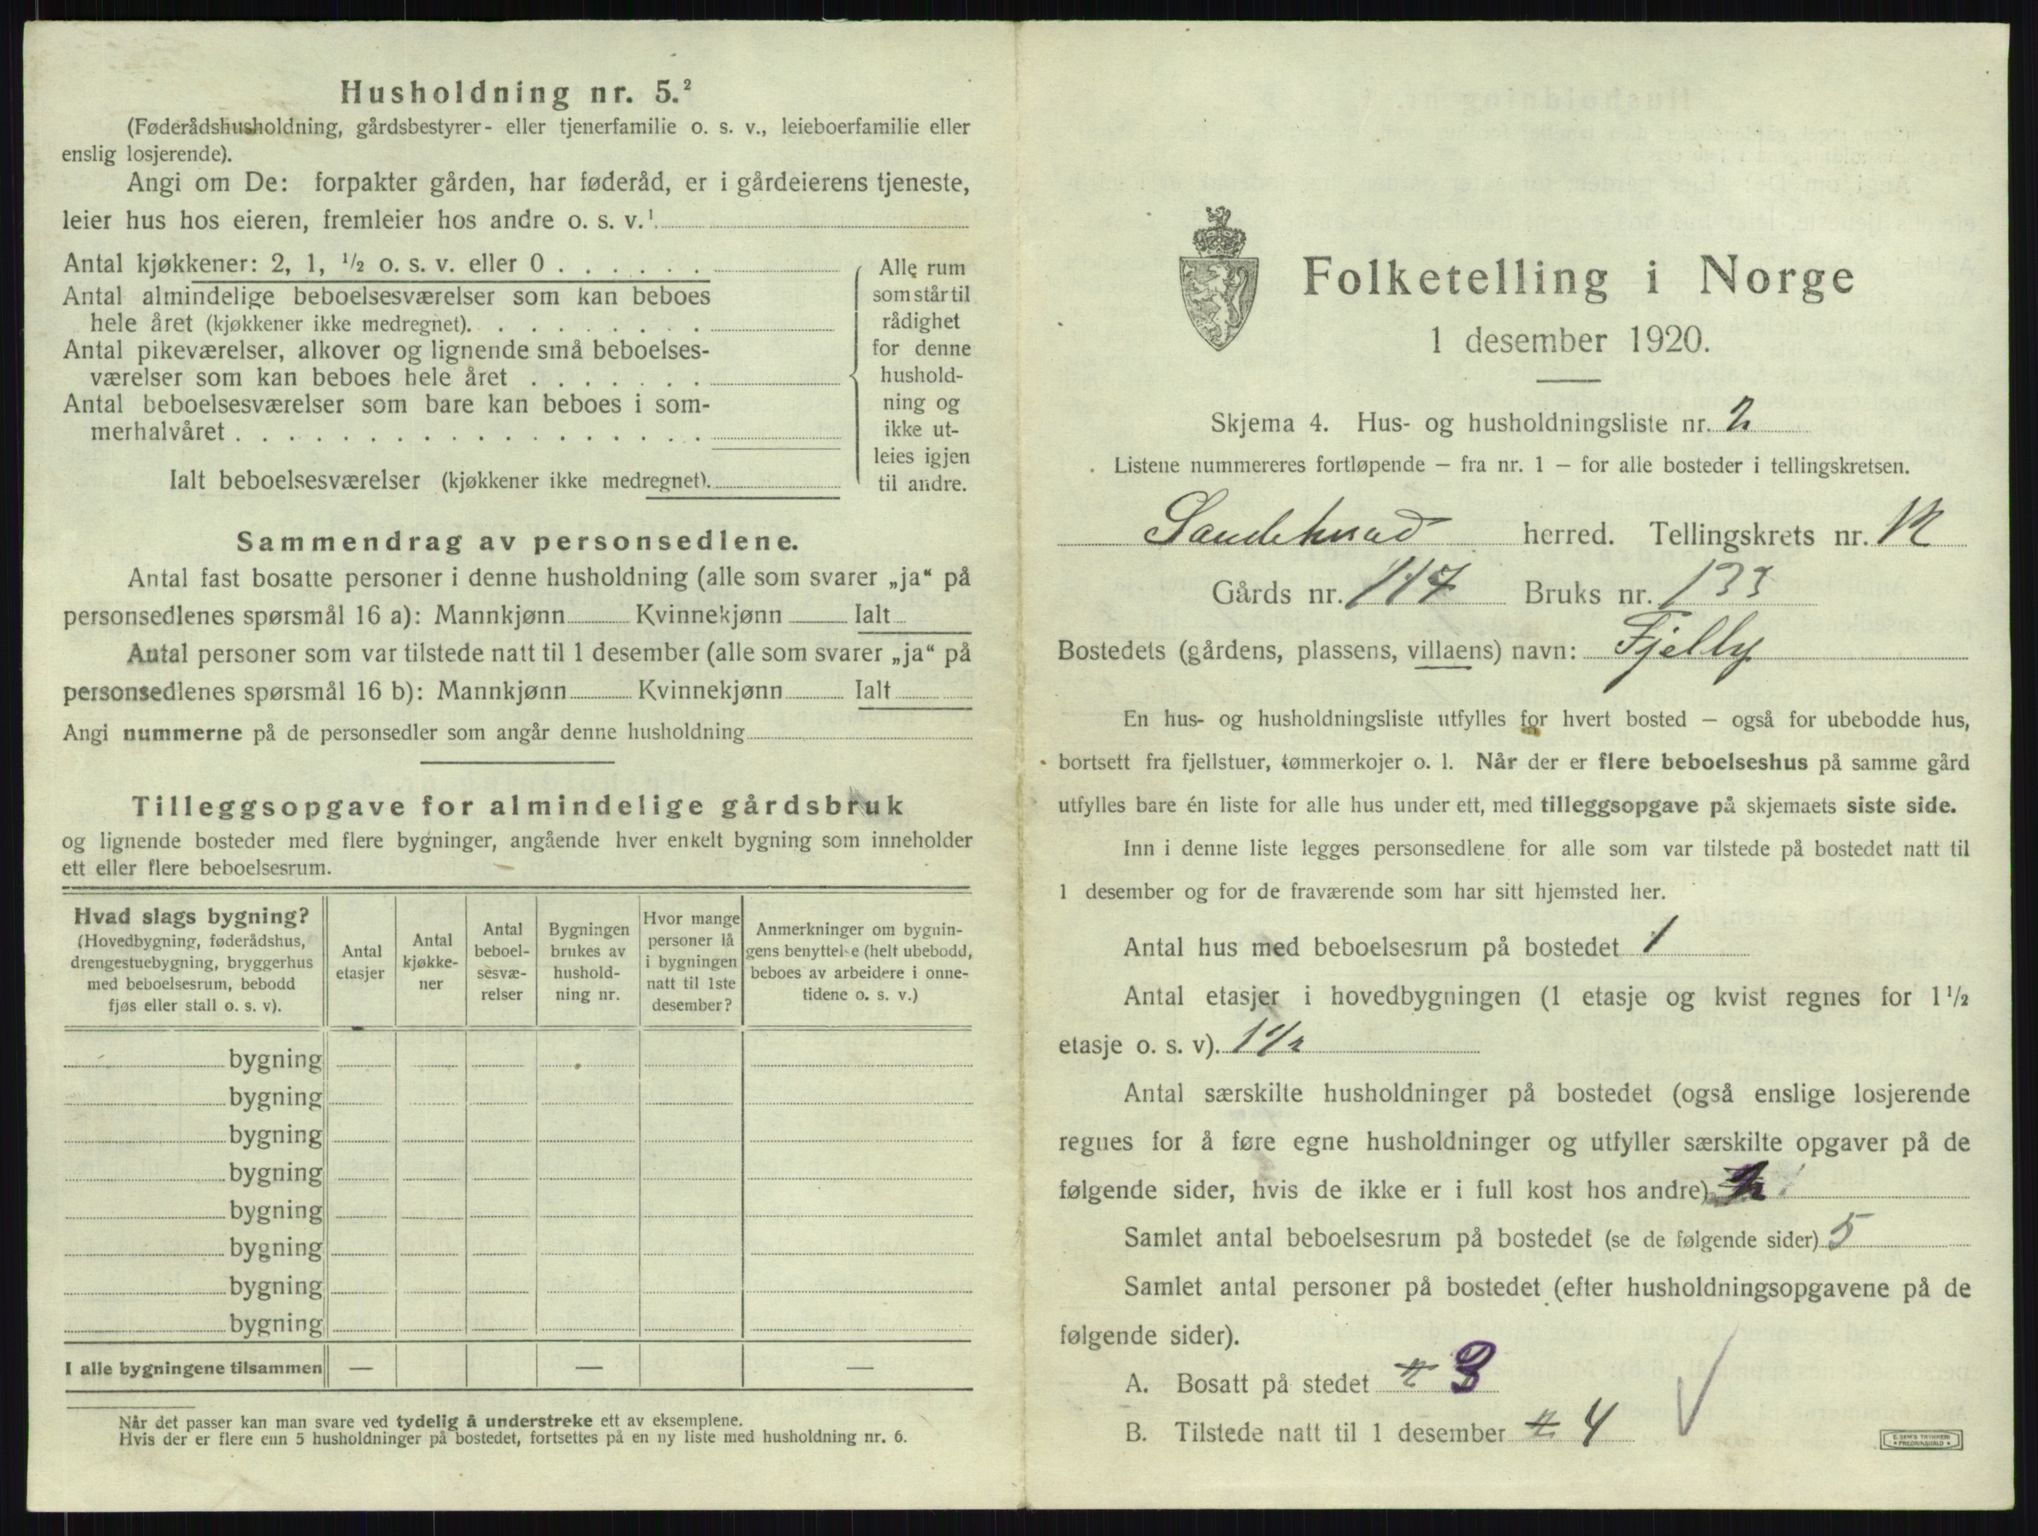 Husholdning nr. 5.²
(Føderådshusholdning, gårdsbestyrer- eller tjenerfamilie o. s. v., leieboerfamilie eller
enslig losjerende).
Angi om De: forpakter gården, har føderåd, er i gårdeierens tjeneste,
leier hus hos eieren, fremleier hos andre o. s. v.¹
Antal kjøkkener: 2, 1, ½ o. s. v. eller 0 . . . . . .
Antal almindelige beboelsesværelser som kan beboes
hele året (kjøkkener ikke medregnet). . . . . . . . .
Antal pikeværelser, alkover og lignende små beboelses-
værelser som kan beboes hele året . . . . . . .
Antal beboelsesværelser som bare kan beboes i som-
merhalvåret . . . . . . . . . . . . . . . . . .
Ialt beboelsesværelser (kjøkkener ikke medregnet).
Alle rum
som står til
rådighet
for denne
hushold-
ning og
ikke ut-
leies igjen
til andre.
Sammendrag av personsedlene.
Antal fast bosatte personer i denne husholdning (alle som svarer „ja“ på
personsedlenes spørsmål 16 a): Mannkjønn Kvinnekjønn Ialt
Antal personer som var tilstede natt til 1 desember (alle som svarer „ja“ på
personsedlenes spørsmål 16 b): Mannkjønn Kvinnekjønn Ialt
Angi nummerne på de personsedler som angår denne husholdning
Tilleggsopgave for almindelige gårdsbruk
og lignende bosteder med flere bygninger, angående hver enkelt bygning som inneholder
ett eller flere beboelsesrum.
Hvad slags bygning?
(Hovedbygning, føderådshus,
drengestuebygning, bryggerhus
med beboelsesrum, bebodd
fjøs eller stall o. s. v).
Antal
etasjer
Antal
kjøkke-
ner
Antal
beboel-
sesvæ-
relser
Bygningen
brukes av
hushold-
ning nr.
Hvor mange
personer lå
i bygningen
natt til 1ste
desember?
Anmerkninger om bygnin-
gens benyttelse (helt ubebodd,
beboes av arbeidere i onne-
tidene o. s. v.)
bygning
bygning
bygning
bygning
bygning
bygning
bygning
bygning
I alle bygningene tilsammen — — —
Når det passer kan man svare ved tydelig å understreke ett av eksemplene.
Hvis der er flere enn 5 husholdninger på bostedet, fortsettes på en ny liste med husholdning nr. 6.
Folketelling i Norge
1 desember 1920.
Skjema 4. Hus- og husholdningsliste nr. 2
Listene nummereres fortløpende – fra nr. 1 – for alle bosteder i tellingskretsen.
Sandeherad herred. Tellingskrets nr. 12
Gårds nr. 117 Bruks nr. 133
Bostedets (gårdens, plassens, villaens) navn: Fjelly
En hus- og husholdningsliste utfylles for hvert bosted – også for ubebodde hus,
bortsett fra fjellstuer, tømmerkojer o. l. Når der er flere beboelseshus på samme gård
utfylles bare én liste for alle hus under ett, med tilleggsopgave på skjemaets siste side.
Inn i denne liste legges personsedlene for alle som var tilstede på bostedet natt til
1 desember og for de fraværende som har sitt hjemsted her.
Antal hus med beboelsesrum på bostedet 1
Antal etasjer i hovedbygningen (1 etasje og kvist regnes for 1½
etasje o. s. v). 1½
Antal særskilte husholdninger på bostedet (også enslige losjerende
regnes for å føre egne husholdninger og utfyller særskilte opgaver på de
følgende sider, hvis de ikke er i full kost hos andre)
Samlet antal beboelsesrum på bostedet (se de følgende sider) 5
Samlet antal personer på bostedet (efter husholdningsopgavene på de
følgende sider).
A. Bosatt på stedet 3
B. Tilstede natt til 1 desember 4
E. SEM'S TRYKKERI
FREDRIKSHALD